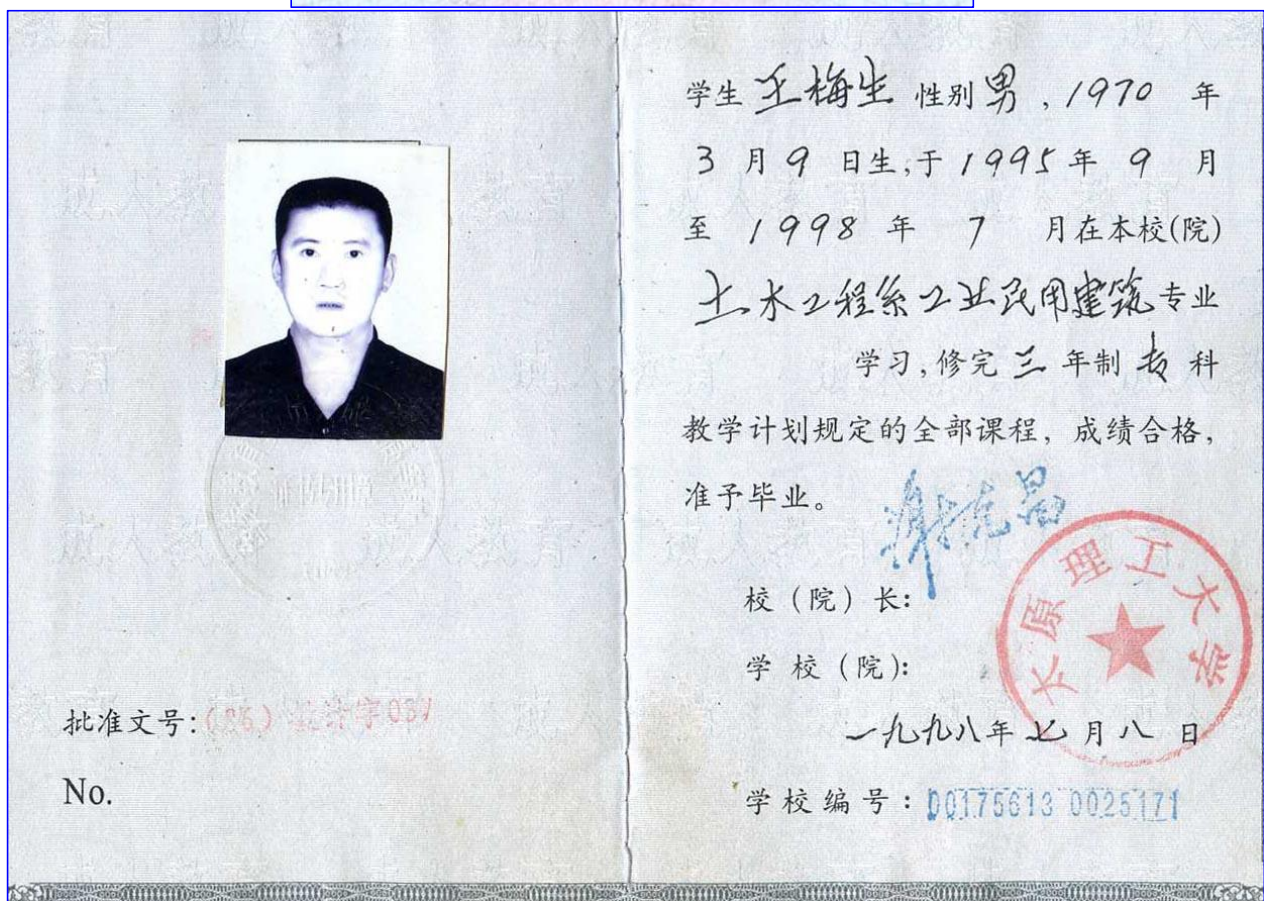 批准文号:
No.
学生 王梅生 性别 男 , 1970 年
3 月 9 日生,于 1995 年 9 月
至 1998 年 7 月在本校(院)
土木工程系工业民用建筑 专业
学习, 修完 三 年制 专 科
教学计划规定的全部课程, 成绩合格,
准予毕业。
校 (院) 长:
学 校 (院):
太原理工大学
一九九八年 七 月 八 日
学校编号: 00175613 0025171
成人教育